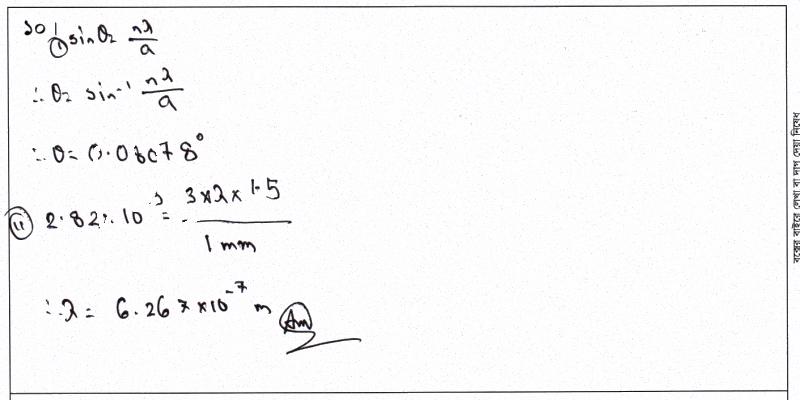 ১০ (i) sinθ = nλ/a
∴ θ = sin⁻¹ nλ/a
∴ θ = 0.06078°
(ii) 2.82×10⁻³ = 3×λ×1.5/1 mm
∴ λ = 6.267×10⁻⁷ m Ans
বক্সের বাইরে লেখা বা দাগ দেয়া নিষেধ